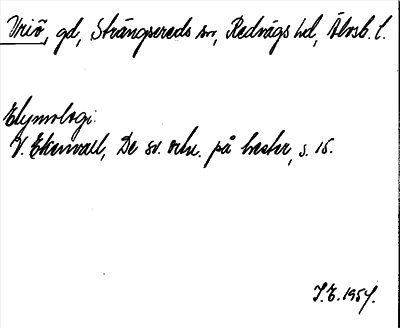 Vriö, gd, Strängsereds sn, Redvägs hd, Älvsb. l.
Etymologi:
V. Ekenvall, De sv. ortn. på hester, s. 15.
I.E. 1954.